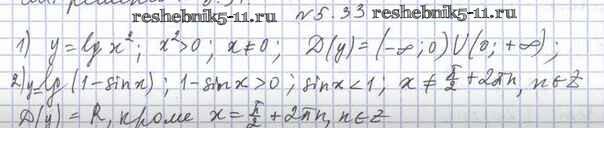 www.reshebnik5-11.ru
www.reshebnik5-11.ru № 5.33
1) y = lg x²; x² > 0; x ≠ 0; D(y) = (-∞; 0) ∪ (0; +∞);
2) y = lg (1 - sin x); 1 - sin x > 0; sin x < 1; x ≠ π/2 + 2πn, n ∈ Z
D(y) = R, кроме x = π/2 + 2πn, n ∈ Z